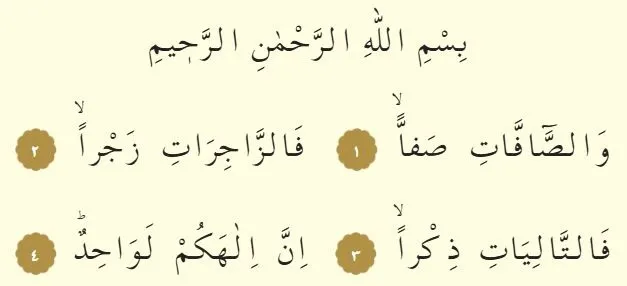 بِسْمِ اللّٰهِ الرَّحْمٰنِ الرَّح۪يمِ
وَالصَّٓافَّاتِ صَفاًّۙ ١ فَالزَّاجِرَاتِ زَجْراًۙ ٢
فَالتَّالِيَاتِ ذِكْراًۙ ٣ اِنَّ اِلٰهَكُمْ لَوَاحِدٌۜ ٤